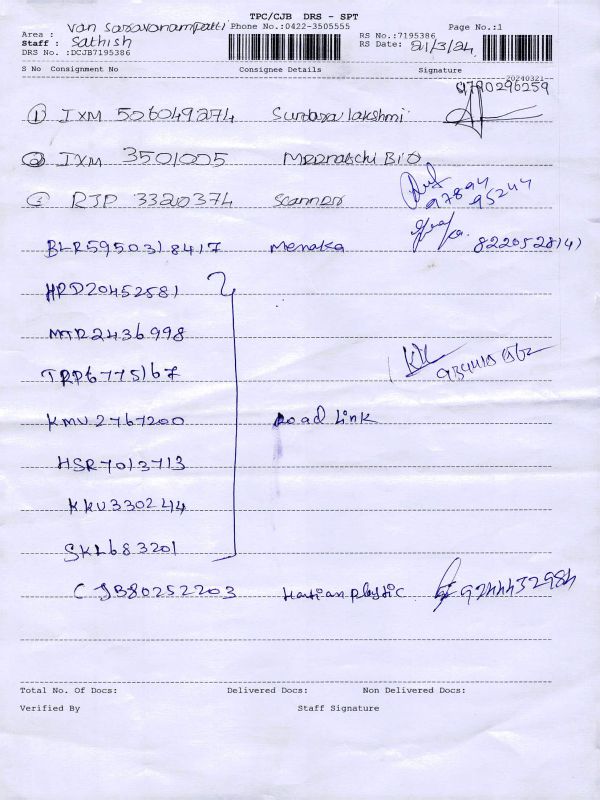 TPC/CJB DRS - SPT
Area : van Saravanampatti Phone No.:0422-3505555 Page No.:1
Staff : Sathish RS No.:7195386
DRS No. :DCJB7195386 RS Date: 21/3/24
S No Consignment No Consignee Details Signature
20240321
9790296259
① IXM 506049274 Sundara lakshmi
② IXM 3501005 Meenatchi BIO
③ RJP 3320374 Scanner 97894 95244
BLR5950318417 Menaka 8220528141
HRD20452581
MTR2436998
TRP6775167
KMU2767200 Road Link
HSR7013713
KKU330244
SKL683201
CJB80252203 Harian plastic 9244432984
Total No. Of Docs: Delivered Docs: Non Delivered Docs:
Verified By Staff Signature